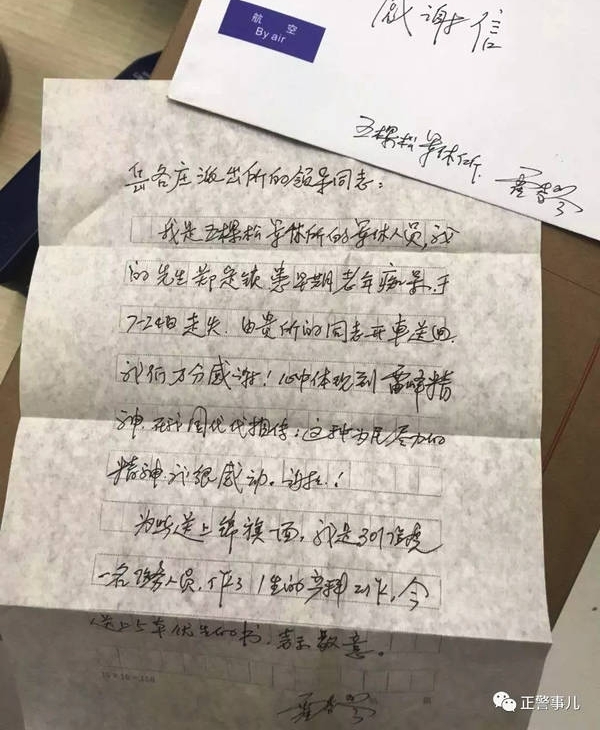 航空
By air
感谢信
五棵松军休所
岳各庄派出所的领导同志：
我是五棵松军休所的军休人员，我
的先生郑是镇患早期老年痴呆，于
7-24日走失，由贵所的同志开车送回，
我们万分感谢！心中体现到雷峰精
神，在我国代代相传；这种为民尽力的
精神我很感动。谢谢！
为此送上锦旗一面，我是301医院
一名医务人员，作了1生的 工作，今
送上 优生的书，表示敬意。
正警事儿